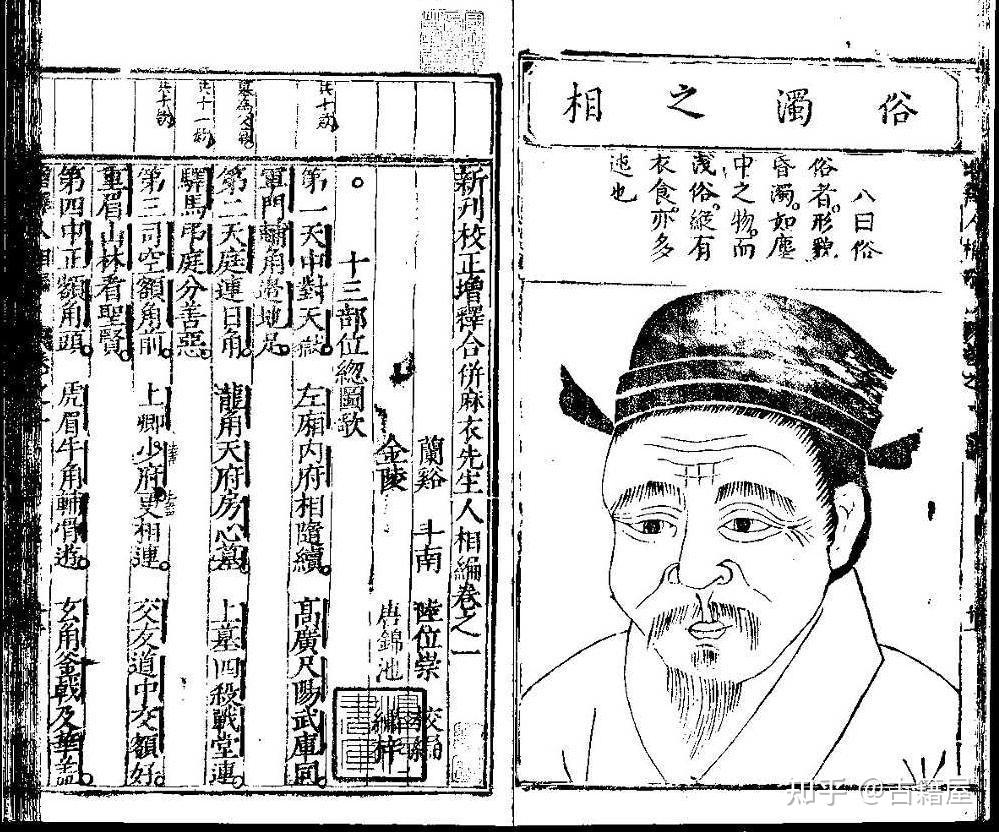 俗濁之相
八曰俗
俗者形貌
昏濁如塵
中之物而
淺俗縱有
衣食亦多
迍也
新刊校正增釋合併麻衣先生人相編卷之一
蘭谿 斗南 陸位崇 校編
金陵 唐錦池 繡梓
十三部位總圖歌
第一天中對天獄 左廂內府相隨續 高廣尺陽武庫同
軍門輔角邊地足
共十一部
第二天庭連日角 龍角天府房心墓 上墓四殺戰堂連
驛馬弔庭分善惡
第三司空額角前 上卿少府更相連 交友道中交額好
重眉山林看聖賢
第四中正額角頭 虎眉牛角輔骨遊 玄角釜戟及華蓋
知乎 @古籍屋